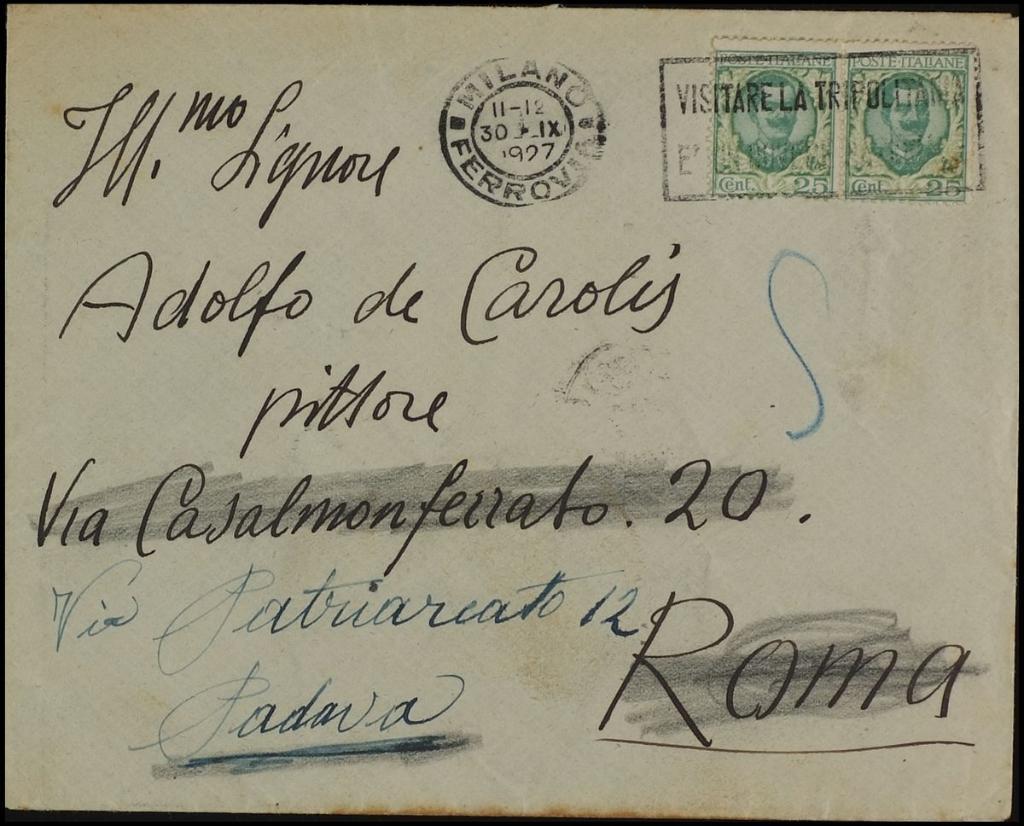 MILANO
11-12
30 IX
1927
FERROVIA
VISITARE LA TRIPOLITANIA
E'
POSTE ITALIANE
Cent. 25
POSTE ITALIANE
Cent. 25
Ill.mo Signore
Adolfo de Carolis
pittore
Via Casalmonferrato. 20.
Via Patriarcato 12
Roma
Padova